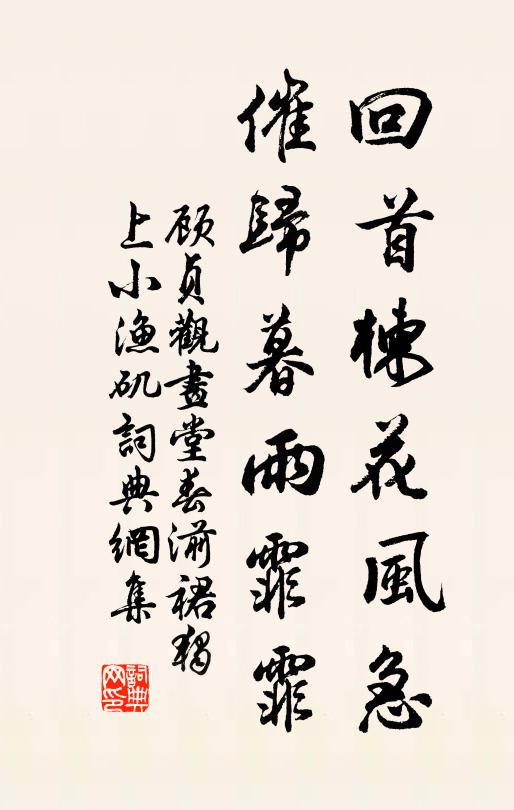 回首楝花風急
催歸暮雨霏霏
顾貞觀畫堂春湔裙獨
上小漁矶詞典網集
詞典网印